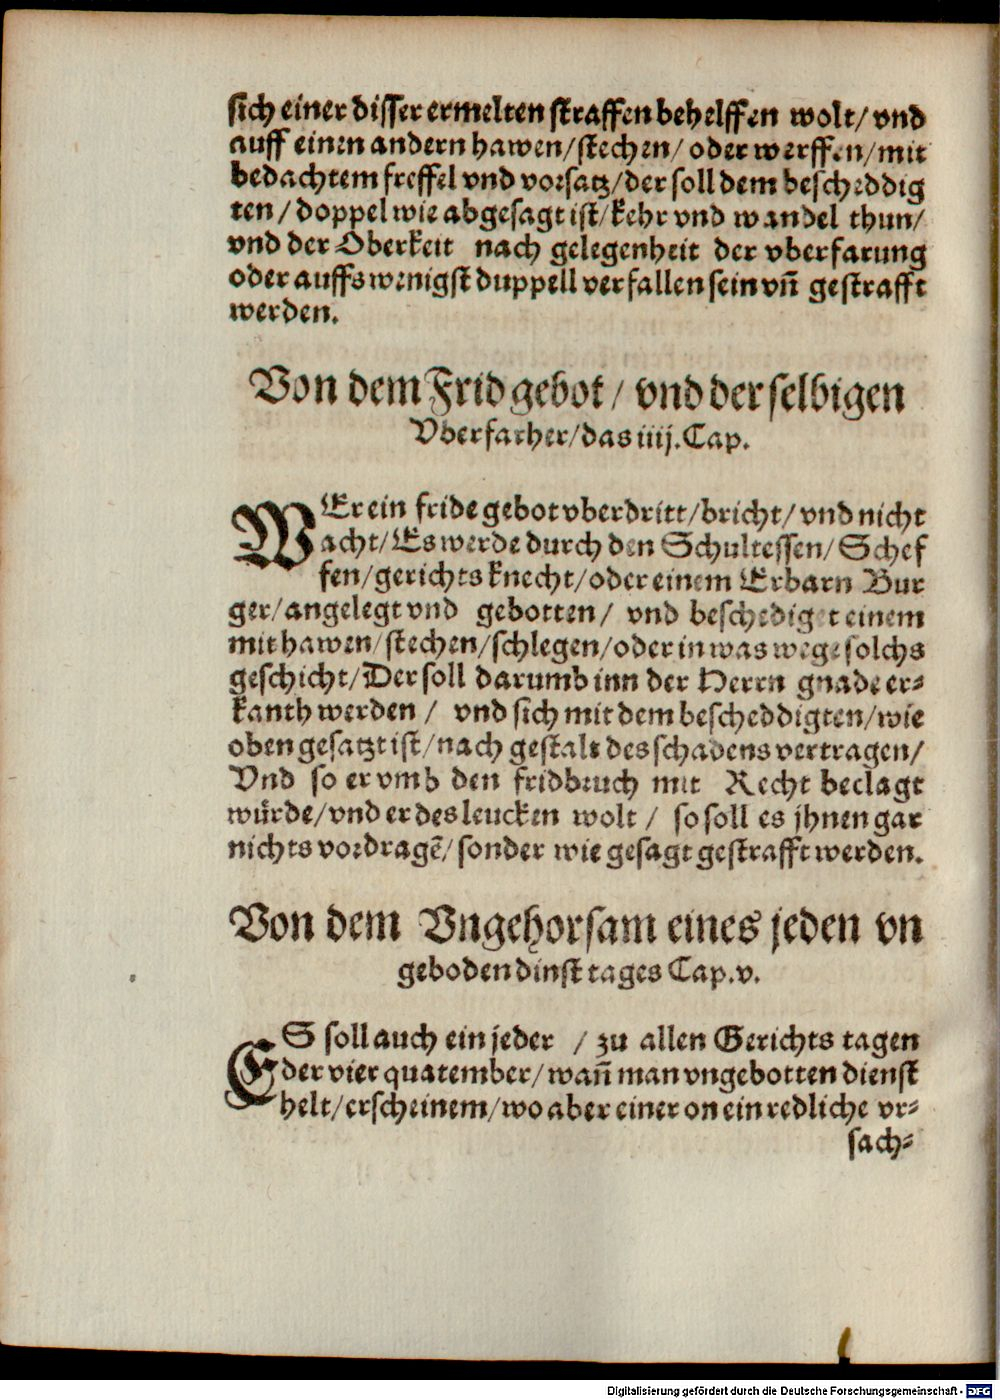 sich einer disser ermelten straffen behelffen wolt/ vnd
auff einen andern hawen/stechen/ oder werffen/mit
bedachtem freffel vnd vorsatz/der soll dem bescheddig
ten/ doppel wie abgesagt ist/kehr vnd wandel thun/
vnd der Oberkeit nach gelegenheit der vberfarung
oder auffs wenigst duppell verfallen sein vñ gestrafft
werden.
Von dem Frid gebot/ vnd der selbigen
Vberfarher/das iiij.Cap.
WEr ein fride gebot vberdritt/bricht/ vnd nicht
acht/ Es werde durch den Schultessen/ Schef
fen/gerichts knecht/oder einem Erbarn Bur
ger/angelegt vnd gebotten/ vnd beschediget einem
mit hawen/stechen/schlegen/oder in was wege solchs
geschicht/Der soll darumb inn der Herrn gnade er-
kanth werden/ vnd sich mit dem bescheddigten/wie
oben gesatzt ist/nach gestalt des schadens vertragen/
Vnd so er vmb den fridbruch mit Recht beclagt
würde/vnd er des leucken wolt/ so soll es jhnen gar
nichts vordragẽ/sonder wie gesagt gestrafft werden.
Von dem Vngehorsam eines jeden vn
geboden dinst tages Cap.v.
ES soll auch ein jeder / zu allen Gerichts tagen
der vier quatember/wañ man vngebotten dienst
helt/erscheinem/wo aber einer on ein redliche vr-
sach-
Digitalisierung gefördert durch die Deutsche Forschungsgemeinschaft - DFG